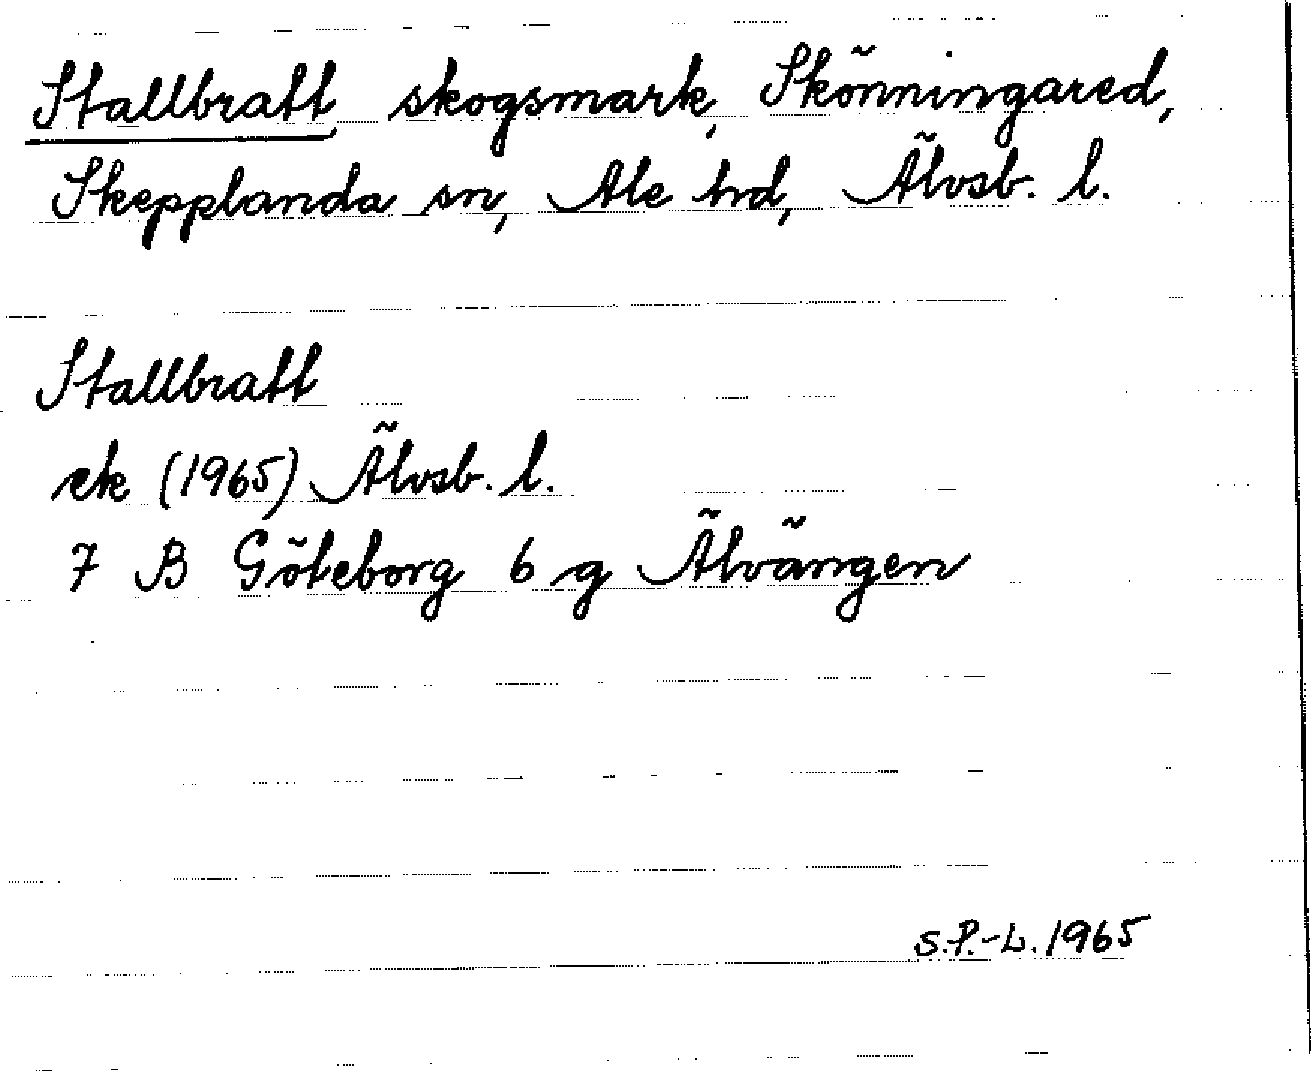 Stallbratt, skogsmark, Skönningared,
Skepplanda sn, Ale hd, Älvsb. l.
Stallbratt
ek (1965) Älvsb. l.
7 B Göteborg 6 g Älvängen
S.P.-L. 1965